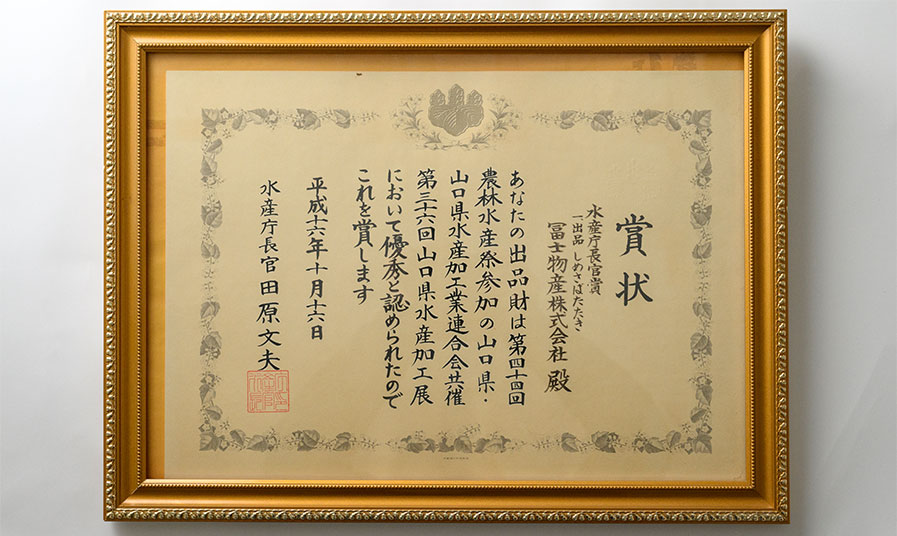 賞状
水産庁長官賞
一出品 しめさばたたき
冨士物産株式会社 殿
あなたの出品財は第四十回
農林水産祭参加の山口県・
山口県水産加工業連合会共催
第三十六回山口県水産加工展
において優秀と認められたので
これを賞します
平成十六年十月十六日
水産庁長官田原文夫